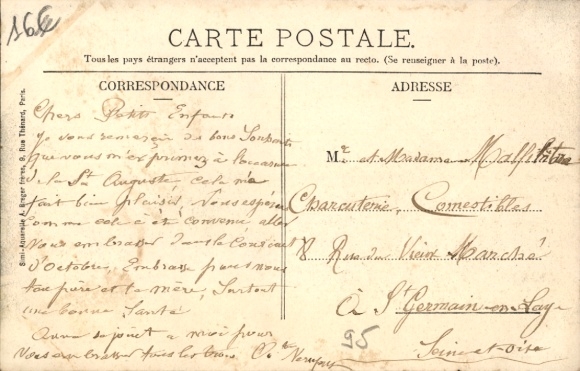 166
CARTE POSTALE.
Tous les pays étrangers n'acceptent pas la correspondance au recto. (Se renseigner à la poste).
CORRESPONDANCE
Chers Petits Enfants
Je vous remercie de bons Souhaits
que vous m'exprimez à l'occasion
de la St Auguste, cela m'a
fait bien plaisir, Nous espérons
comme cela a été convenu, aller
vous embrasser dans le Courant
d'Octobre. Embrasse pour nous
ton père et ta mère, Surtout
une bonne Santé
se joint a moi pour
vous embrasser tous les trois
ADRESSE
Mr et Madame Malfilatre
Charcuterie, Comestibles
8 Rue du Vieux Marché
À St Germain en Laye
Seine et Oise
95
Simi-Aquarelle A. Breger frères, 9, Rue Thénard, Paris.